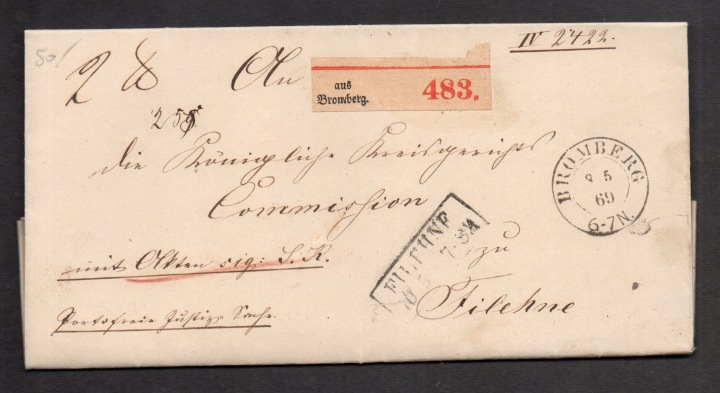 50/
IV 2422.
2 ℔ An
aus
Bromberg. 483.
die Königliche Kreisgerichts
Commission
BROMBERG
8 5
69
6-7N.
FILEHNE
7-8
zu
Filehne
mit Akten sig: S. K.
Portofreie Justiz Sache